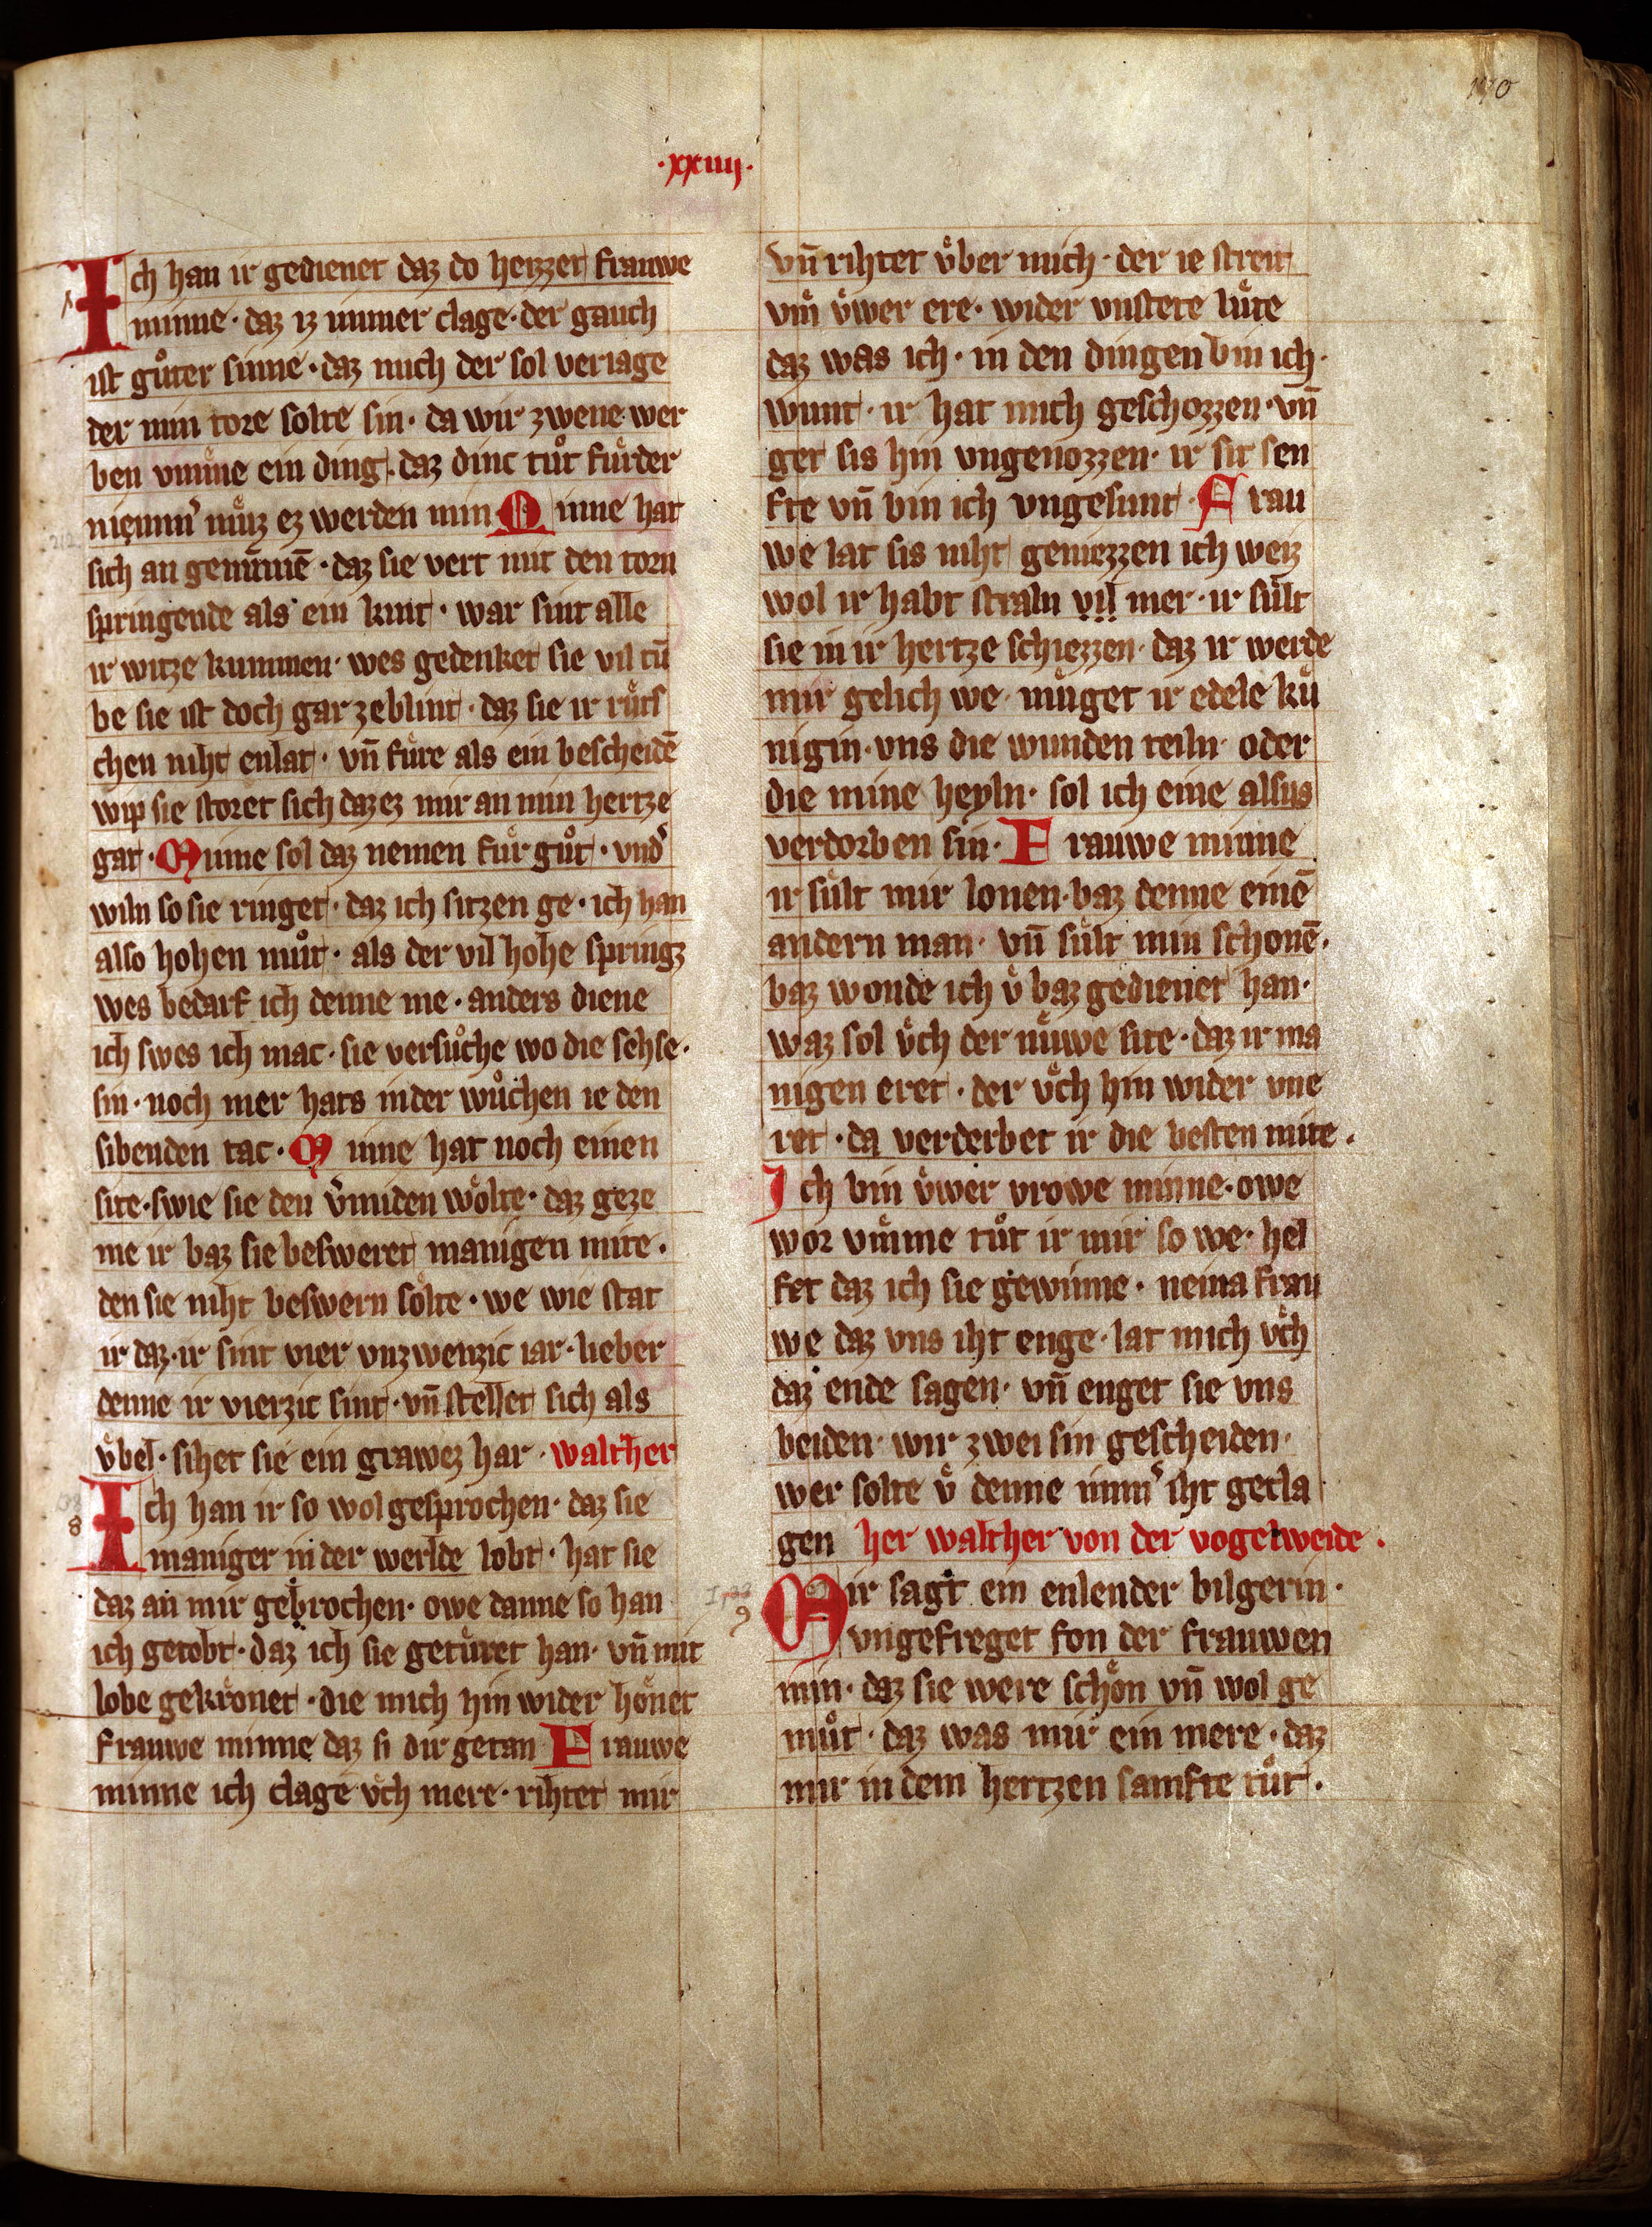 170
·xxiiij·
Ich han ir gedienet daz do heizzet frauwe
minne · daz iz immer clage · der gauch
ist gůter sinne · daz mich der sol veriage
der min tore solte sin · da wir zwene wer
ben vmme ein ding · daz dinc tůt fuͤrder
niemm͛ muͤz ez werden min Minne hat
sich an genummē · daz sie vert mit den torn
springende als ein kint · war sint alle
ir witze kummen · wes gedenket sie vil tū
be sie ist doch gar zeblint · daz sie ir ruͤs
chen niht enlat · vn̄ fuͤre als ein bescheidē
wip sie storet sich daz ez mir an min hertze
gat · Minne sol daz nemen fuͤr gůt · vnd͛
wiln so sie ringet · daz ich sitzen ge · ich han
also hohen můt · als der vil hohe springz
wes bedarf ich denne me · anders diene
ich swes ich mac · sie versůche wo die sehse ·
sin · noch mer hats in der wůchen ie den
sibenden tac · Minne hat noch einen
site · swie sie den v͛miden woͤlte · daz geze
me ir baz sie besweret manigen mite ·
den sie niht beswern soͤlte · we wie stat
ir daz · ir sint vier vnzwenzic iar · lieber
denne ir vierzic sint · vn̄ stellet sich als
vͤbel · sihet sie ein grawez har · walther
Ich han ir so wol gesprochen · daz sie
maniger in der werlde lobt · hat sie
daz an mir gebrochen · owe danne so han
ich getobt · daz ich sie getuͤret han · vn̄ mit
lobe gekroͤnet · die mich hin wider hoͤnet
frauwe minne daz si dir getan Frauwe
minne ich clage vͤch mere · rihtet mir
vn̄ rihter vͤber mich · der ie streit
vm̄ vͤwer ere · wider vnstete luͤte
daz was ich · in den dingen bin ich ·
wunt · ir hat mich geschozzen · vn̄
get sis hin vngenozzen · ir sit sen
fte vn̄ bin ich vngesunt · Frau
we lat sis niht geniezzen ich weiz
wol ir habt straln vil mer · ir suͤlt
sie in ir hertze schiezzen · daz ir werde
mir gelich we · muͤget ir edele kuͤ
nigin · vns die wunden teiln · oder
die mine heyln · sol ich eine alsus
verdorben sin · Frauwe minne
ir suͤlt mir lonen · baz denne einē
andern man · vn̄ suͤlt min schonē ·
baz wonde ich vͤ baz gedienet han ·
waz sol vͤch der nuͤwe site · daz ir ma
nigen eret · der vͤch hin wider vne
ret · da verderbet ir die besten mite ·
Ich bin vͤwer vrowe minne · owe
wor vm̄me tůt ir mir so we · hel
fet daz ich sie gewinne · neina frau
we daz vns iht enge · lat mich vͤch
daz ende sagen · vn̄ enget sie vns
beiden · wir zwei sin gescheiden ·
wer solte vͤ denne imm͛ iht gecla
gen her walther von der vogelweide ·
Mir sagt ein enlender bilgerin ·
vngefreget fon der frauwen
min · daz sie were schoͤn vn̄ wol ge
můt · daz was mir ein mere · daz
mir in dem hertzen samfte tůt ·